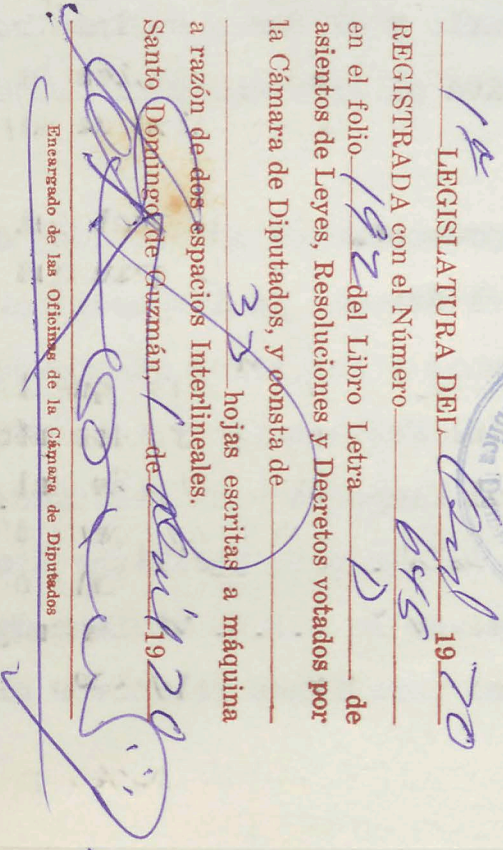 1ª LEGISLATURA DEL Ord 1970
REGISTRADA con el Número 645
en el folio 192 del Libro Letra D de
asientos de Leyes, Resoluciones y Decretos votados por
la Cámara de Diputados, y consta de
33 hojas escritas a máquina
a razón de dos espacios Interlineales.
Santo Domingo de Guzmán, 1 de Abril 1970
Encargado de las Oficinas de la Cámara de Diputados